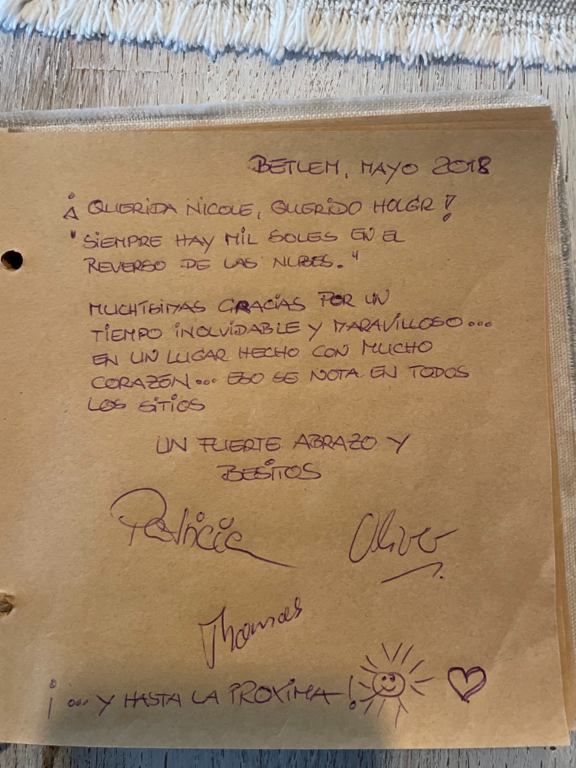 BETLEM, MAYO 2018
¡ QUERIDA NICOLE, QUERIDO HOLGR !
"SIEMPRE HAY MIL SOLES EN EL
REVERSO DE LAS NUBES."
MUCHÍSIMAS GRACIAS POR UN
TIEMPO INOLVIDABLE Y MARAVILLOSO...
EN UN LUGAR HECHO CON MUCHO
CORAZÓN... ESO SE NOTA EN TODOS
LOS SITIOS
UN FUERTE ABRAZO Y
BESITOS
Patricia Oliver
Thomas
¡... Y HASTA LA PROXIMA!